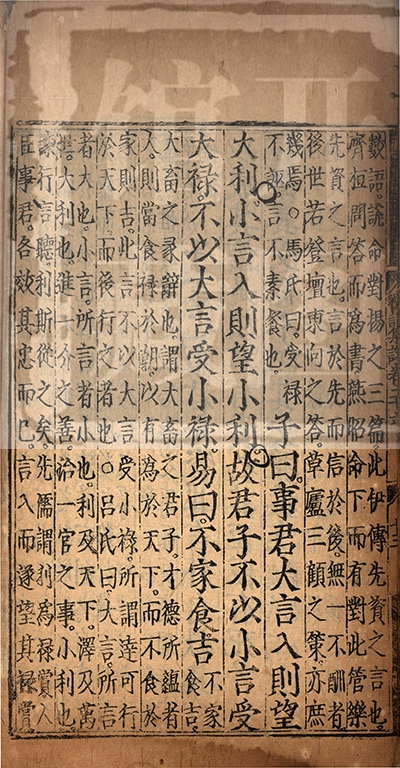 數語說命對揚之三篇此伊傅先資之言也。
齊桓問答而爲書燕昭命下而有對此管樂
先資之言也言於先而信於後無一不酬者
後世若登壇東向之答草廬三顧之策亦庶
幾焉。○馬氏曰。受祿
不誣言不素餐也。
子曰。事君大言入則望
大利。小言入則望小利。故君子不以小言受
大祿。不以大言受小祿。易曰。不家食吉
不家
食吉。
大畜之彖辭也。謂大畜之君子。才德所蘊者
大。則當食祿於朝。以有爲於天下。而不食於
家則吉。此言不以大言受小祿。所謂達可行
於天下。而後行之者也。○呂氏曰。大言。所言
者大也。小言。所言者小也。利及天下。澤及萬
世。大利也。進一介之善。治一官之事。小利也。
諫行言聽。利斯從之矣。先儒謂利爲祿賞。人
臣事君。各效其忠而已。言入而遂望其祿賞